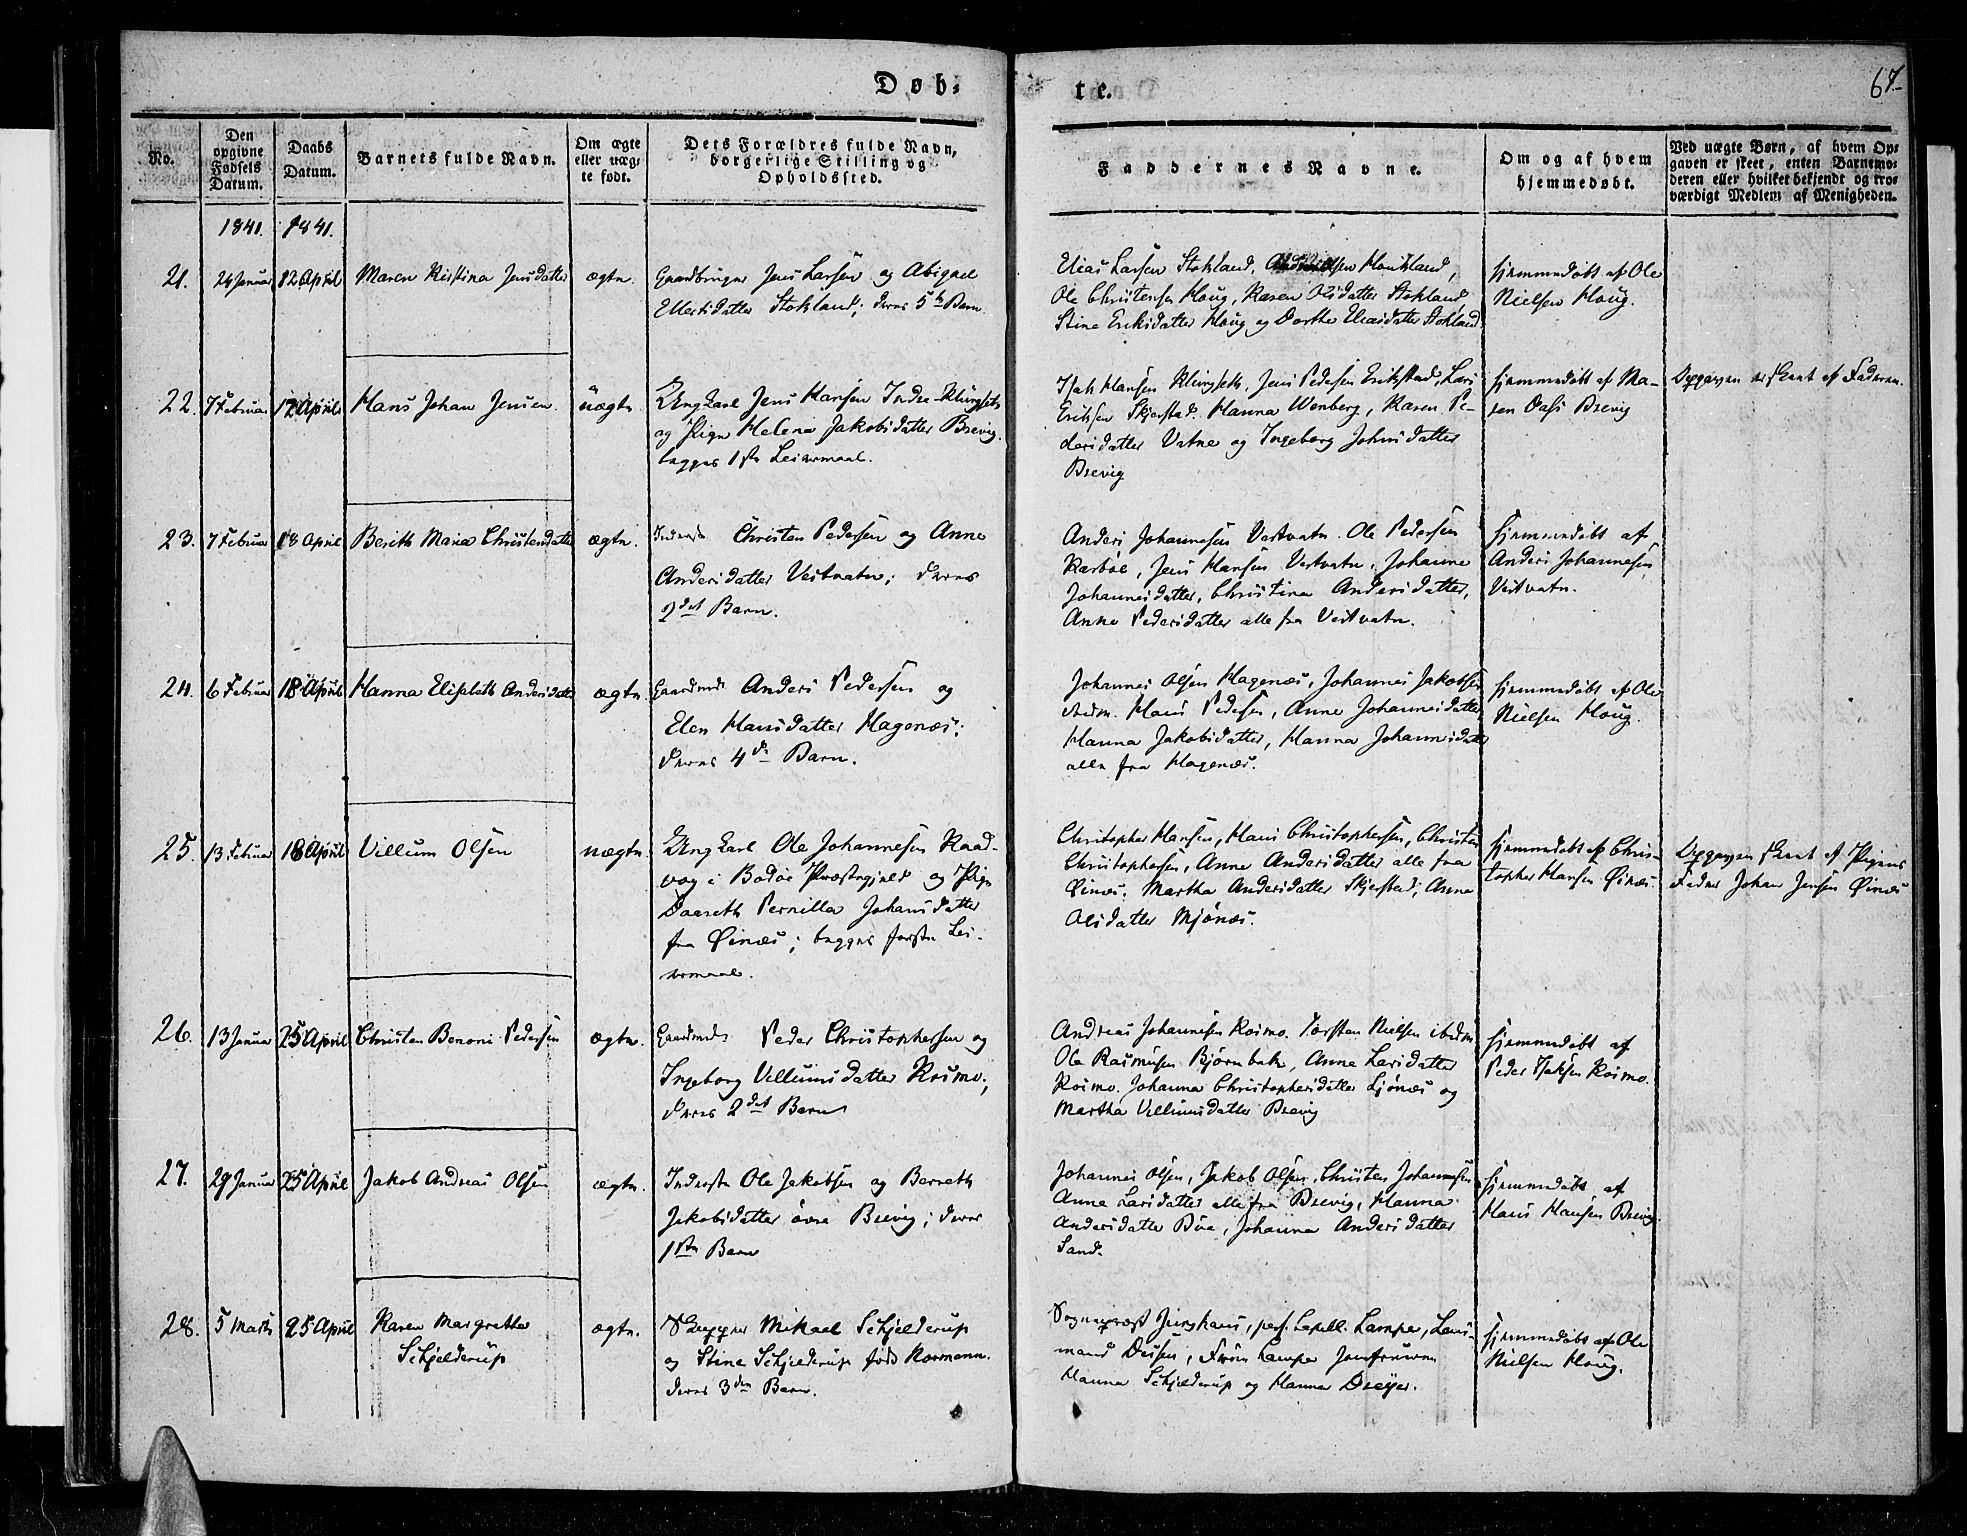 Døb-
te.
67
No.
Den opgivne Fødsels Datum.
Daabs Datum.
Barnets fulde Navn.
Om ægte eller uæg-te født.
Dets Forældres fulde Navn, borgerlige Stilling og Opholdssted.
Faddernes Navne.
Om og af hvem hjemmedøbt.
Ved uægte Børn, af hvem Op-gaven er skeet, enten Barnemo-deren eller hvilket bekjendt og tro-værdigt Medlem af Menigheden.
1841. 1841.
21. 24 Januar 12 April Maren Kistina Jensdatter ægte.
Gaardbruger Jens Larsen og Abigael
Ellertsdatter Stokland; deres 5te Barn
Elias Larsen Stokland, Hoükland,
Ole Christensen Houg, Karen Olsdatter Stokland
Stine Eriksdatter Houg og Dorthe Eliasdatter Stokland
hjemmedøbt af Ole
Nielsen Houg.
22. 7 Februar 12 April Hans Johan Jensen üægte
Ungkarl Jens Hansen Indre-Klüngseth
og Pige Helena Jakobsdatter Brevig.
begges 1ste Leiermaal.
Isak Hansen Klüngseth, Jens Pedersen Erikstad, Lars
Eriksen Skjerstad. Hanna Wenberg, Karen Pe-
dersdatter Vatne og Ingeborg Johnsdatter
Brevig
hjemmedøbt af Ma-
Brevig
Opgaven er skeet af Faderen.
23. 7 Februar 18 April Berith Maria Christensdatter ægte.
Inderst Christen Pedersen og Anne
Andersdatter Vestvatn; deres
2det Barn.
Anders Johannesen Vestvatn. Ole Pedersen
Karbøe, Jens Hansen Vestvatn, Johanna
Johannesdatter, Christina Andersdatter,
Anne Pedersdatter alle fra Vestvatn.
hjemmedøbt af
Anders Johannesen
Vestvatn.
24. 6 Februar 18 April Hanna Elisabeth Andersdatter ægte.
Gaardmd. Anders Pedersen og
Elen Hansdatter Hagenæs;
deres 4de Barn.
Johannes Olsen Hagenæs, Johannes Jakobsen
ibidm. Hans Pedersen, Anne Johannesdatter
Hanna Jakobsdatter, Hanna Johannesdatter
alle fra Hagenæs.
hjemmedøbt af Ole
Nielsen Houg.
25. 13 Februar 18 April Villum Olsen uægte.
Ungkarl Ole Johannesen Kaad-
vog i Bodøe Præstegjeld og Pige
Daareth Pernilla Johansdatter
fra Øinæs; begges første Lei-
ermaal.
Christopher Hansen, Hans Christophersen, Christen
Christophersen, Anne Andersdatter alle fra
Øinæs. Martha Andersdatter Skjerstad; Anne
Olsdatter Mjønæs.
hjemmedøbt af Chris-
topher Hansen Øinæs.
Opgaven skeet af Pigens
Fader Johan Jensen Øinæs
26. 13 Januar 25 April Christen Benoni Pedersen ægte.
Gaardmd. Peder Christophersen og
Ingeborg Villumsdatter Kosmo;
deres 2det Barn
Andreas Johannesen Kosmo. Torsten Nielsen ibidm
Ole Rasmusen Bjørnbak, Anne Larsdatter
Kosmo. Johanna Christophersdatter Ljønæs og
Martha Villumsdatter Brevig
hjemmedøbt af
Peder Isaksen Kosmo.
27. 29 Januar 25 April Jakob Andreas Olsen ægte.
Inderste Ole Jakobsen og Berreth
Jakobsdatter øvre Brevig; deres
1ste Barn
Johannes Olsen, Jakob Olsen, Christen Johannesen
Anne Larsdatter alle fra Brevig, Hanna
Andersdatter Bua, Johanna Andersdatter
Sand.
hjemmedøbt af
Hans Hansen Brevig.
28. 5 Marts 25 April Karen Margrethe
Schjelderup
ægte.
Mikael Schjelderup
og Stine Schjelderup født Normann.
deres 3die Barn.
Sognepræst Junghans, pers. Capell. Lampe, Lens-
mand Dusen, Frue Lampe Jomfruerne
Hanna Schjelderup og Hanna Dreyer.
hjemmedøbt af Ole
Nielsen Houg.